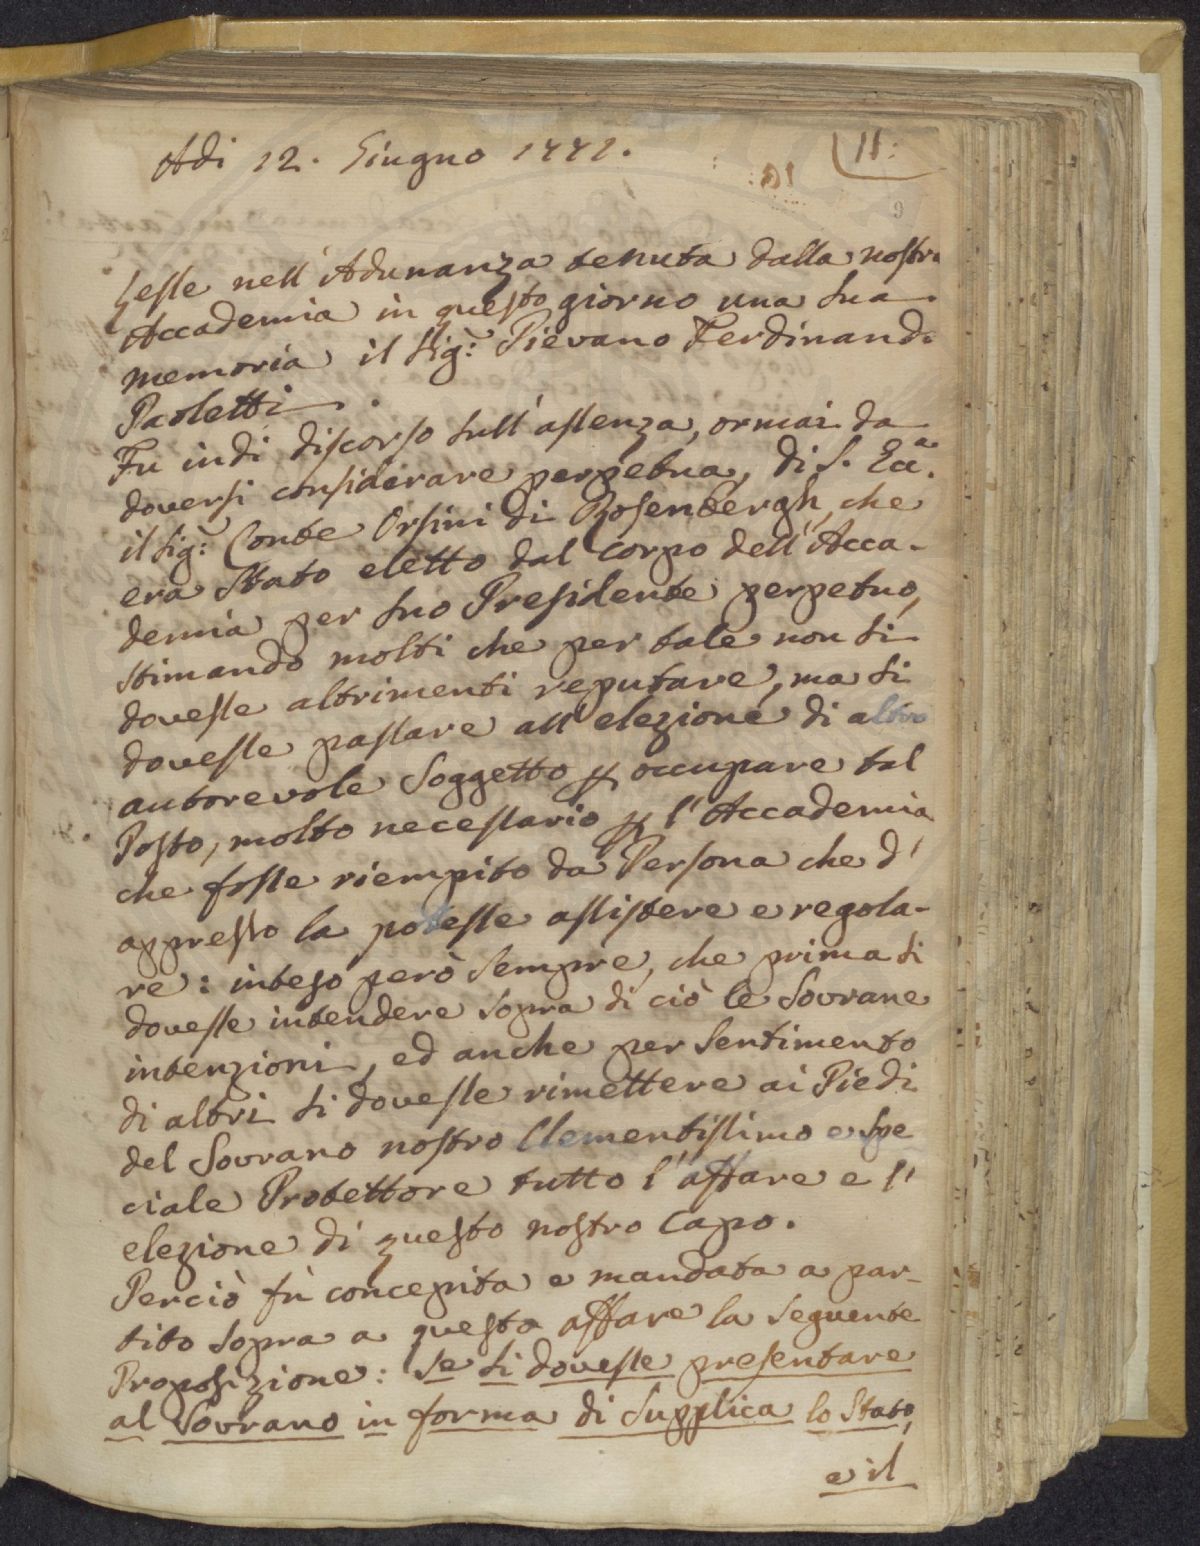 Adi 12. Giugno 1771.
11.
9
Lesse nell'Adunanza tenuta dalla nostra
Accademia in questo giorno una sua
memoria il Sig: Pievano Ferdinando
Paoletti.
Fu indi discorso sull'assenza, ormai da
doversi considerare perpetua, di S. Ecc.a
il Sig: Conte Orsini di Rosenbergh, che
era stato eletto dal Corpo dell'Acca-
demia per suo Presidente perpetuo,
stimando molti che per tale non si
dovesse altrimenti reputare, ma si
dovesse passare all'elezione di altro
autorevole Soggetto p occupare tal
Posto, molto necessario p l'Accademia
che fosse riempito da Persona che d'
appresso la potesse assistere e regola-
re: inteso però sempre, che prima si
dovesse intendere sopra di ciò le Sovrane
intenzioni, ed anche per sentimento
di altri si dovesse rimettere ai Piedi
del Sovrano nostro Clementissimo e Spe
ciale Protettore tutto l'affare e l'
elezione di questo nostro Capo.
Perciò fù concepita e mandata a par-
tito sopra a questo affare la seguente
Proposizione: se si dovesse presentare
al Sovrano in forma di Supplica lo Stato,
e il